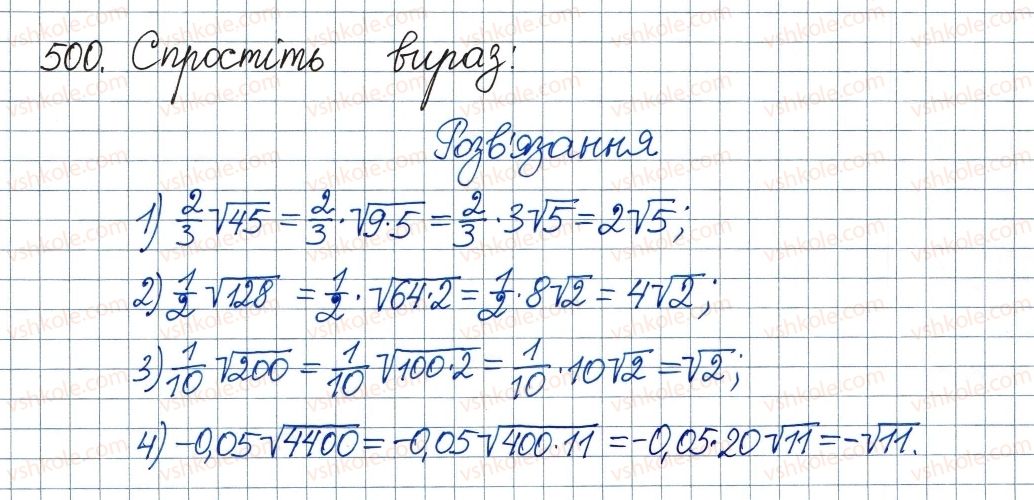 500. Спростіть вираз:
Розв'язання
1) 2/3 √45 = 2/3 · √9·5 = 2/3 · 3√5 = 2√5;
2) 1/2 √128 = 1/2 · √64·2 = 1/2 · 8√2 = 4√2;
3) 1/10 √200 = 1/10 √100·2 = 1/10 · 10√2 = √2;
4) -0,05√4400 = -0,05√400·11 = -0,05·20√11 = -√11.